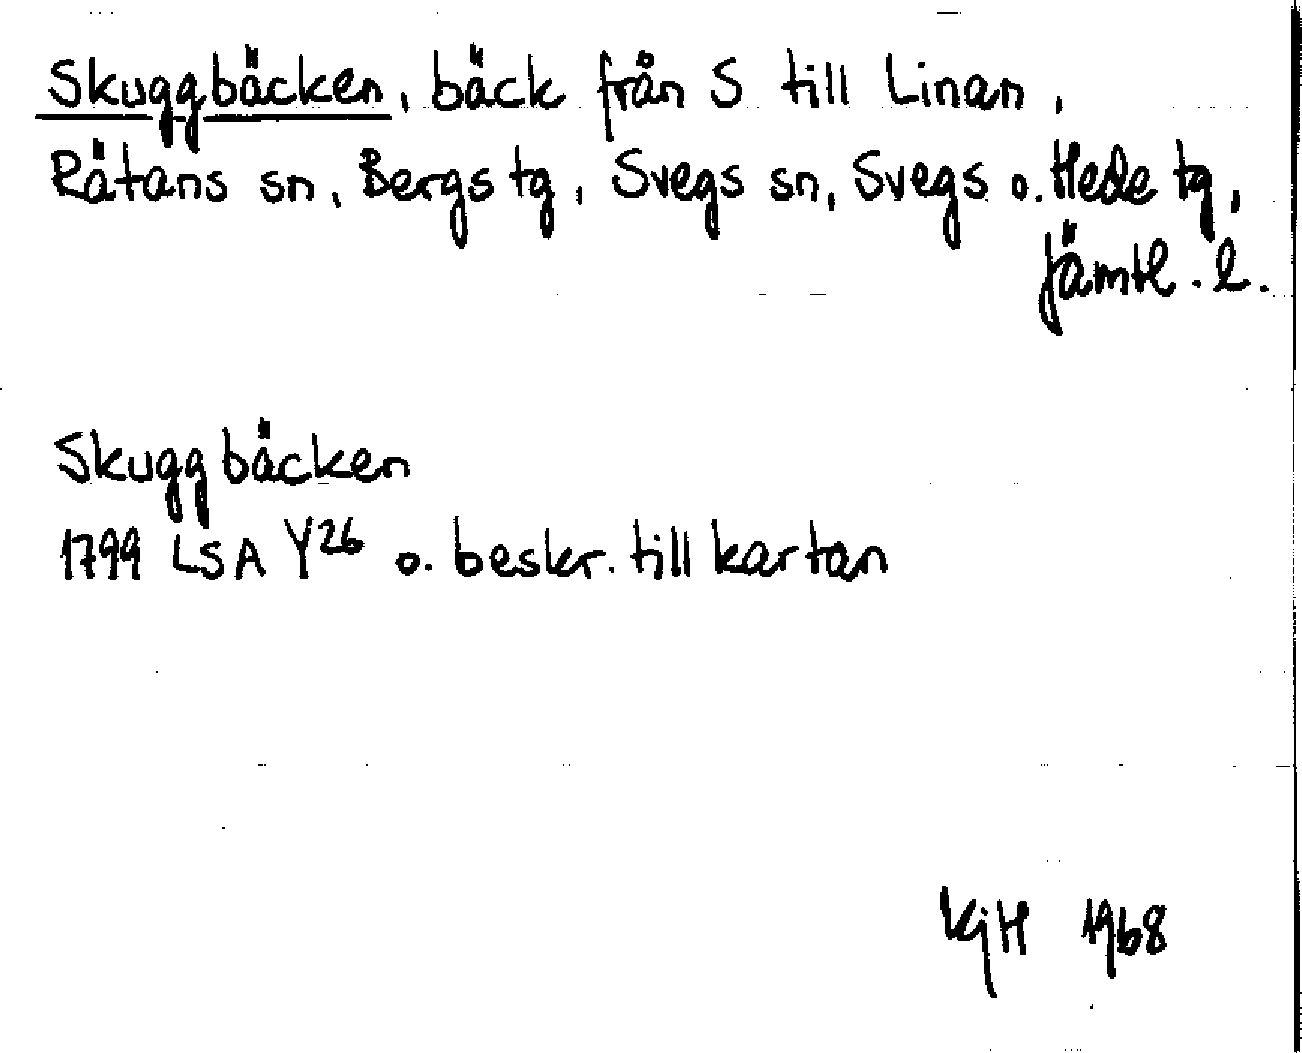 Skuggbäcken, bäck från S till Linan,
Rätans sn, Bergs tg, Svegs sn, Svegs o. Hede tg,
Jämtl. l.
Skuggbäcken
1799 LSA Y26 o. beskr. till kartan
KjH 1968